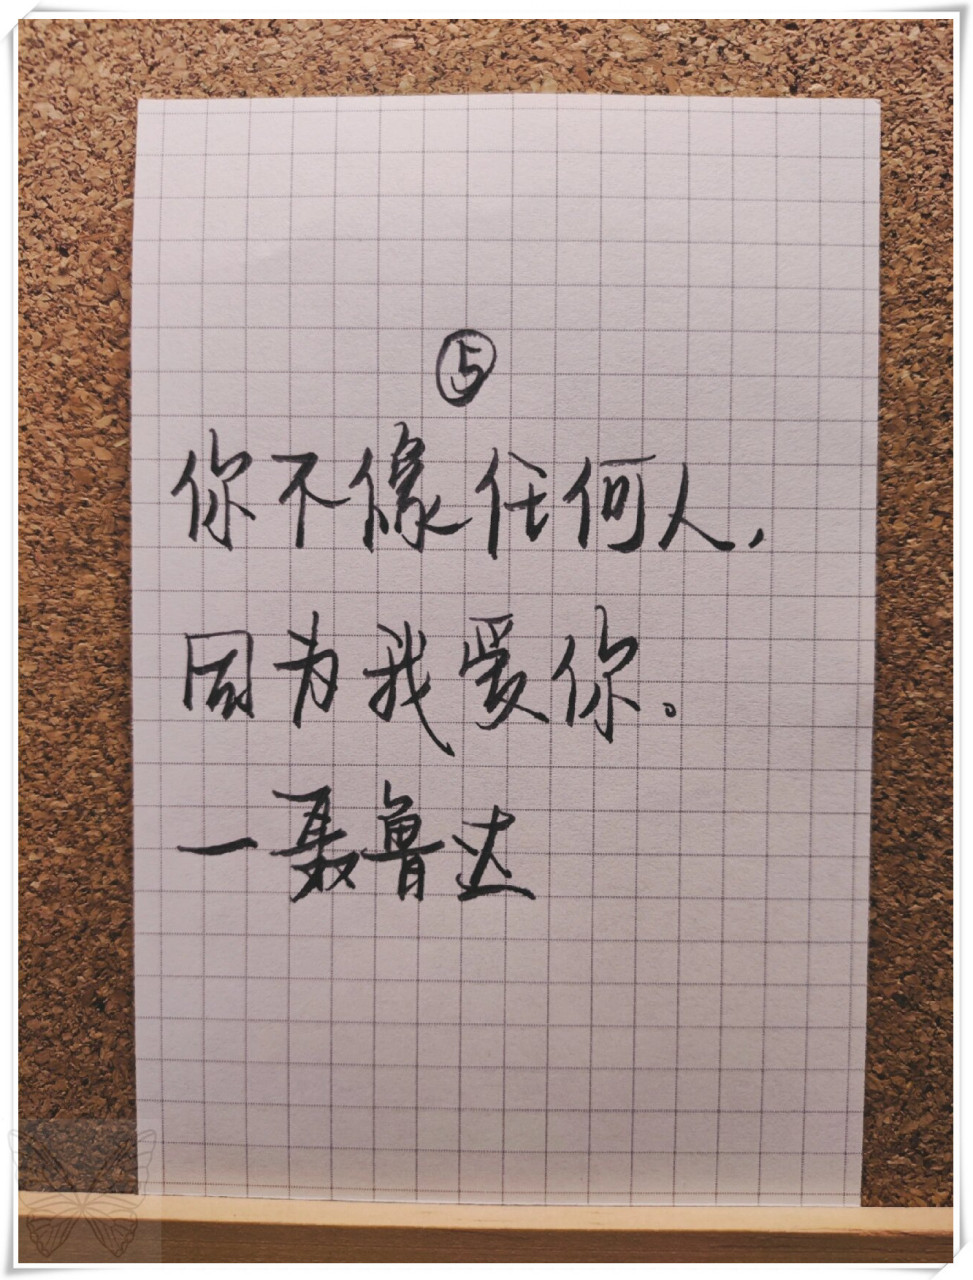 ⑤
你不像任何人,
因为我爱你。
—聂鲁达